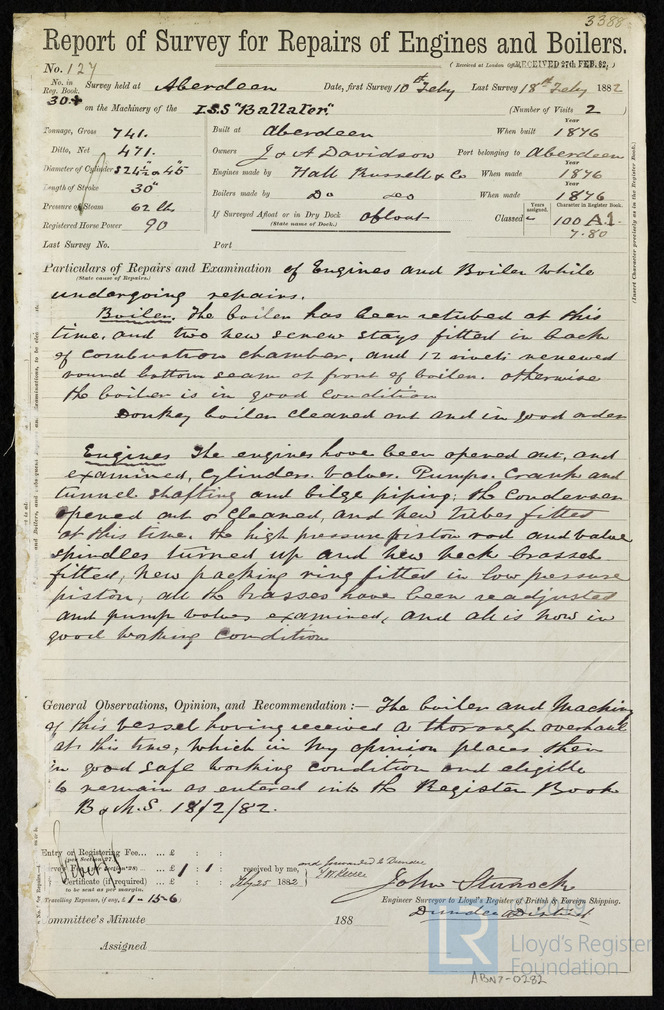 3388
Report of Survey for Repairs of Engines and Boilers.
No. 127
(Received at London Office RECEIVED 27th FEB. 82,)
No. in Reg. Book. Survey held at Aberdeen Date, first Survey 10th Feby Last Survey 18th Feby 1882
30+ on the Machinery of the I.S.S "Ballater" (Number of Visits 2)
Tonnage, Gross 741. Built at Aberdeen When built Year 1876
Ditto, Net 471. Owners J & A Davidson Port belonging to Aberdeen
Diameter of Cylinders 24½" & 45" Engines made by Hall Russell & Co When made Year 1876
Length of Stroke 30" Boilers made by Do Do When made Year 1876
Pressure of Steam 62 lbs If Surveyed Afloat or in Dry Dock afloat Classed Years assigned. Character in Register Book. 100 A.1.
Registered Horse Power 90 (State name of Dock.) 7.80
Last Survey No. Port
(Insert Character precisely as in the Register Book.)
Particulars of Repairs and Examination of Engines and Boiler while
(State cause of Repairs.)
undergoing repairs.
Boiler. The boiler has been retubed at this
time, and two new screw stays fitted in back
of combustion chamber, and 12 rivets renewed
round bottom seam at front of boiler. otherwise
the boiler is in good condition
Donkey boiler cleaned out and in good order
Engines The engines have been opened out, and
examined, Cylinders. Valves. Pumps. Crank and
tunnel shafting and bilge piping; the Condenser
opened out & cleaned, and new tubes fitted
at this time. the high pressure piston rod and valve
spindles turned up and new neck brasses
fitted, new packing ring fitted in low pressure
piston, all the brasses have been readjusted
and pump valves examined, and all is now in
good working condition
General Observations, Opinion, and Recommendation :— The boiler and Machinery
of this vessel having received a thorough overhaul
at this time, which in my opinion places them
in good safe working condition and eligible
to remain as entered into the Register Book
B & M.S. 18/2/82.
Entry or Registering Fee... ... £ : :
(per Section 27)
Survey Fee (per Section 28) ... £ 1 : 1 : received by me, and forwarded to Dundee
Certificate (if required) ... £ : : Feby 25 1882
to be sent as per margin.
Travelling Expenses, if any, £ 1-15-6
John Sturrock
Engineer Surveyor to Lloyd's Register of British & Foreign Shipping.
Dundee District
Committee's Minute 188
Assigned
© 2019
LR
Lloyd's Register
Foundation
ABN7-0282